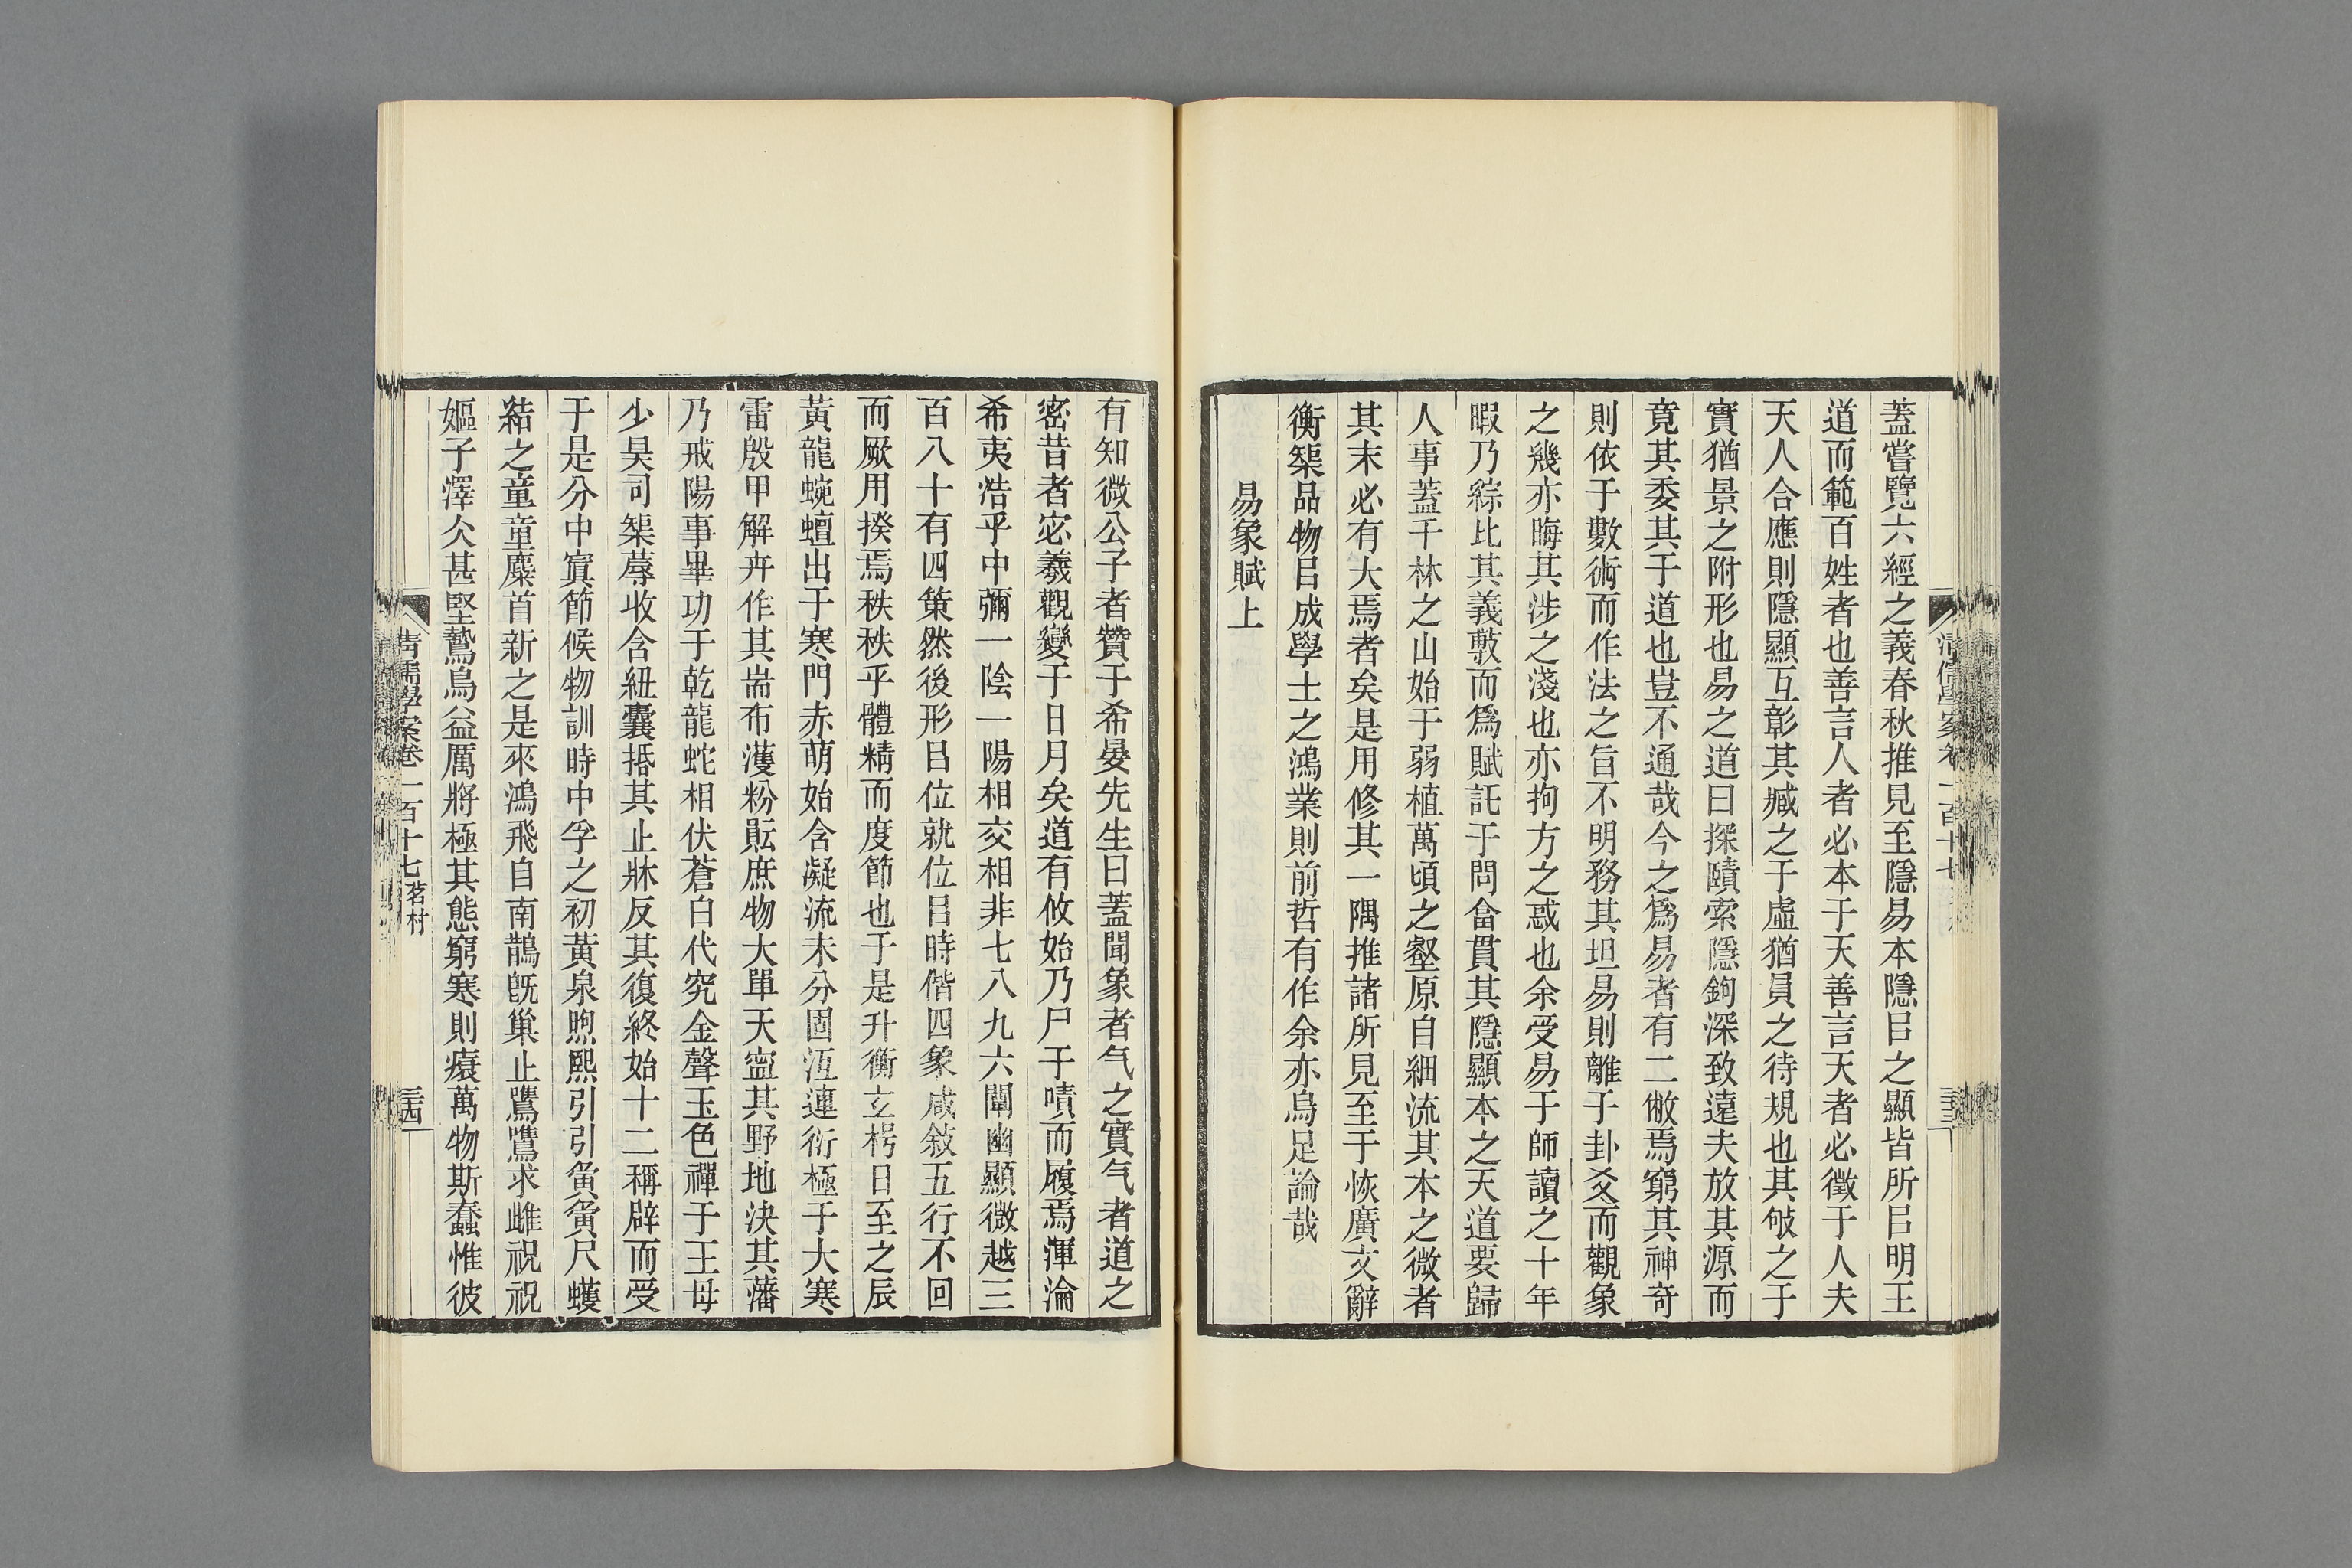 蓋嘗覽六經之義春秋推見至隱易本隱㠯之顯皆所㠯明王
道而範百姓者也善言人者必本于天善言天者必徵于人夫
天人合應則隱顯互彰其臧之于虛猶員之待規也其攷之于
實猶景之附形也易之道曰探賾索隱鉤深致遠夫放其源而
竟其委其于道也豈不通哉今之爲易者有二敝焉窮其神奇
則依于數術而作法之旨不明務其坦易則離于卦爻而觀象
之幾亦晦其涉之淺也亦拘方之惑也余受易于師讀之十年
暇乃綜比其義敷而爲賦託于問畣貫其隱顯本之天道要歸
人事蓋千林之山始于弱植萬頃之壑原自細流其本之微者
其末必有大焉者矣是用修其一隅推諸所見至于恢廣文辭
衡榘品物㠯成學士之鴻業則前哲有作余亦烏足論哉
易象賦上
清儒學案卷一百十七
三十三
有知微公子者贊于希晏先生曰蓋聞象者气之實气者道之
密昔者宓羲觀變于日月矣道有攸始乃尸于嘖而履焉渾淪
希夷浩乎中彌一陰一陽相交相非七八九六闡幽顯微越三
百八十有四策然後形㠯位就位㠯時偕四象咸敍五行不回
而厥用揆焉秩秩乎體精而度節也于是升衡玄枵日至之辰
黃龍蜿蟺出于寒門赤萌始含凝流未分固冱連衍極于大寒
雷殷甲解卉作其耑布濩粉䝬庶物大單天寍其野地決其藩
乃戒陽事畢功于乾龍蛇相伏蒼白代究金聲玉色禪于王母
少昊司榘蓐收含紐囊括其止牀反其復終始十二稱辟而受
于是分中寘節候物訓時中孚之初黃泉煦熙引引黃黃尺蠖
結之童童麋首新之是來鴻飛自南鵲旣巢止鷕鷕求雌祝祝
嫗子澤仌甚堅鷙鳥益厲將極其態窮寒則㿈萬物斯蠢惟彼
清儒學案卷一百十七 茗村
三十四